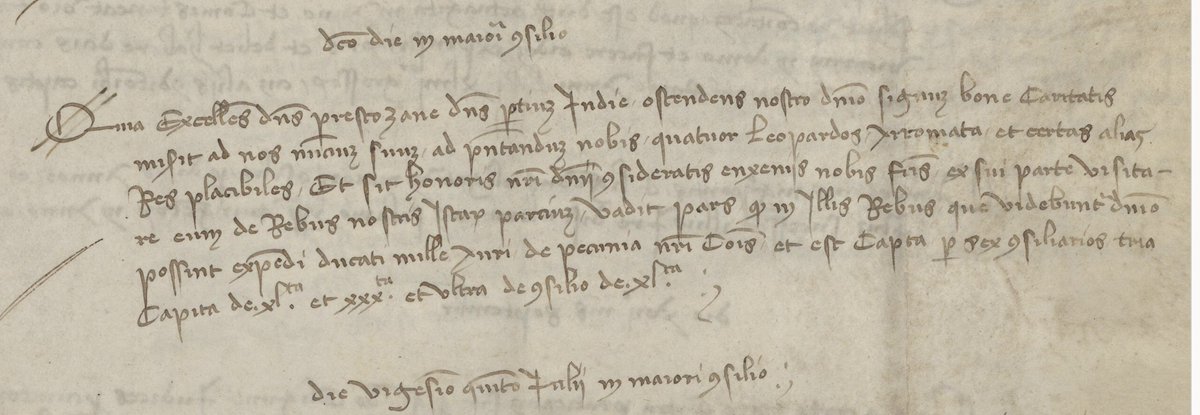 dco die in maiori 9silio
Quia Excellēs dn̄s prestozane dn̄s ꝑtiuꝫ Indie, ostendens nostro dn̄io signuꝫ bone Caritatis
misit ad nos nūciuꝫ suuꝫ, ad p̄ntanduꝫ nobis, quatuor Leopardos Arromata, et certas alias
Res placibiles, Et sit honoris nr̄i dn̄ii 9sideratis enxeniis nobis fc̄is ex sui parte visita-
re eum de Rebus nostris Istaꝝ parciuꝫ, vadit pars ꝙ in Illis Rebus que videbunt᷑ dn̄io
possint expēdi ducati mille Auri de pecunia nr̄i Cōis et est Capta ꝑ sex 9siliarios tria
Capita de .xlᵗᵃ. et xxxᵗᵃ. et ultra de 9silio de .xlᵗᵃ.
die vigesīo quīto Iulii in maiori 9silio